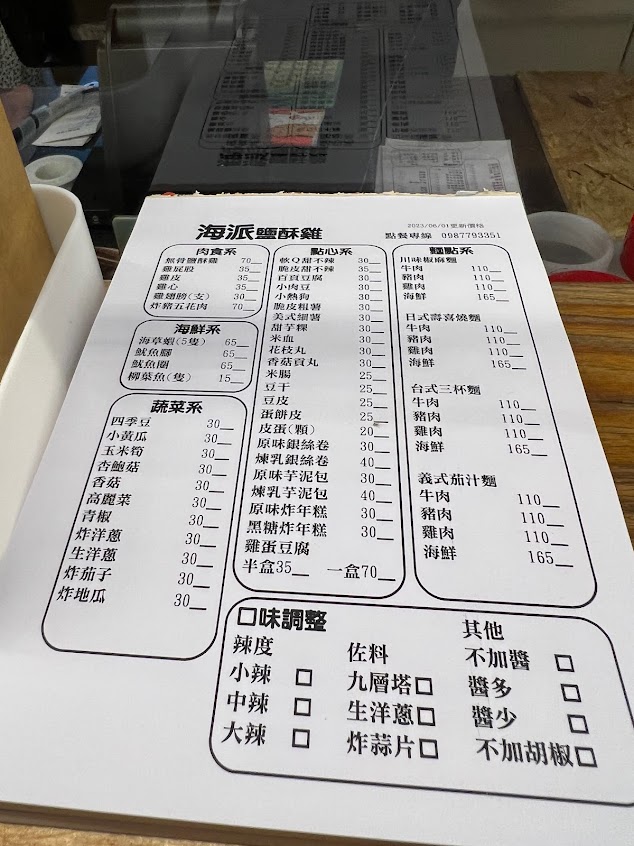 海派鹽酥雞
2023/08/01更新價格
點餐專線 0987793351
肉食系
無骨鹽酥雞 70
雞屁股 35
雞皮 35
雞心 35
雞翅膀(支) 30
炸豬五花肉 70
海鮮系
海草蝦(5隻) 65
魷魚腳 65
魷魚圈 65
柳葉魚(隻) 15
蔬菜系
四季豆 30
小黃瓜 30
玉米筍 30
杏鮑菇 30
香菇 30
高麗菜 30
青椒 30
炸洋蔥 30
生洋蔥 30
炸茄子 30
炸地瓜 30
點心系
軟Q甜不辣 30
脆皮甜不辣 35
百頁豆腐 30
小肉豆 30
小熱狗 30
脆皮粗薯 30
美式細薯 30
甜芋粿 30
米血 30
花枝丸 30
香菇貢丸 30
米腸 25
豆干 25
豆皮 25
蛋餅皮 25
皮蛋(顆) 20
原味銀絲卷 30
煉乳銀絲卷 40
原味芋泥包 30
煉乳芋泥包 40
原味炸年糕 30
黑糖炸年糕 30
雞蛋豆腐
半盒35 一盒70
麵點系
川味椒麻麵
牛肉 110
豬肉 110
雞肉 110
海鮮 165
日式壽喜燒麵
牛肉 110
豬肉 110
雞肉 110
海鮮 165
台式三杯麵
牛肉 110
豬肉 110
雞肉 110
海鮮 165
義式茄汁麵
牛肉 110
豬肉 110
雞肉 110
海鮮 165
口味調整
辣度
小辣
中辣
大辣
佐料
九層塔
生洋蔥
炸蒜片
其他
不加醬
醬多
醬少
不加胡椒